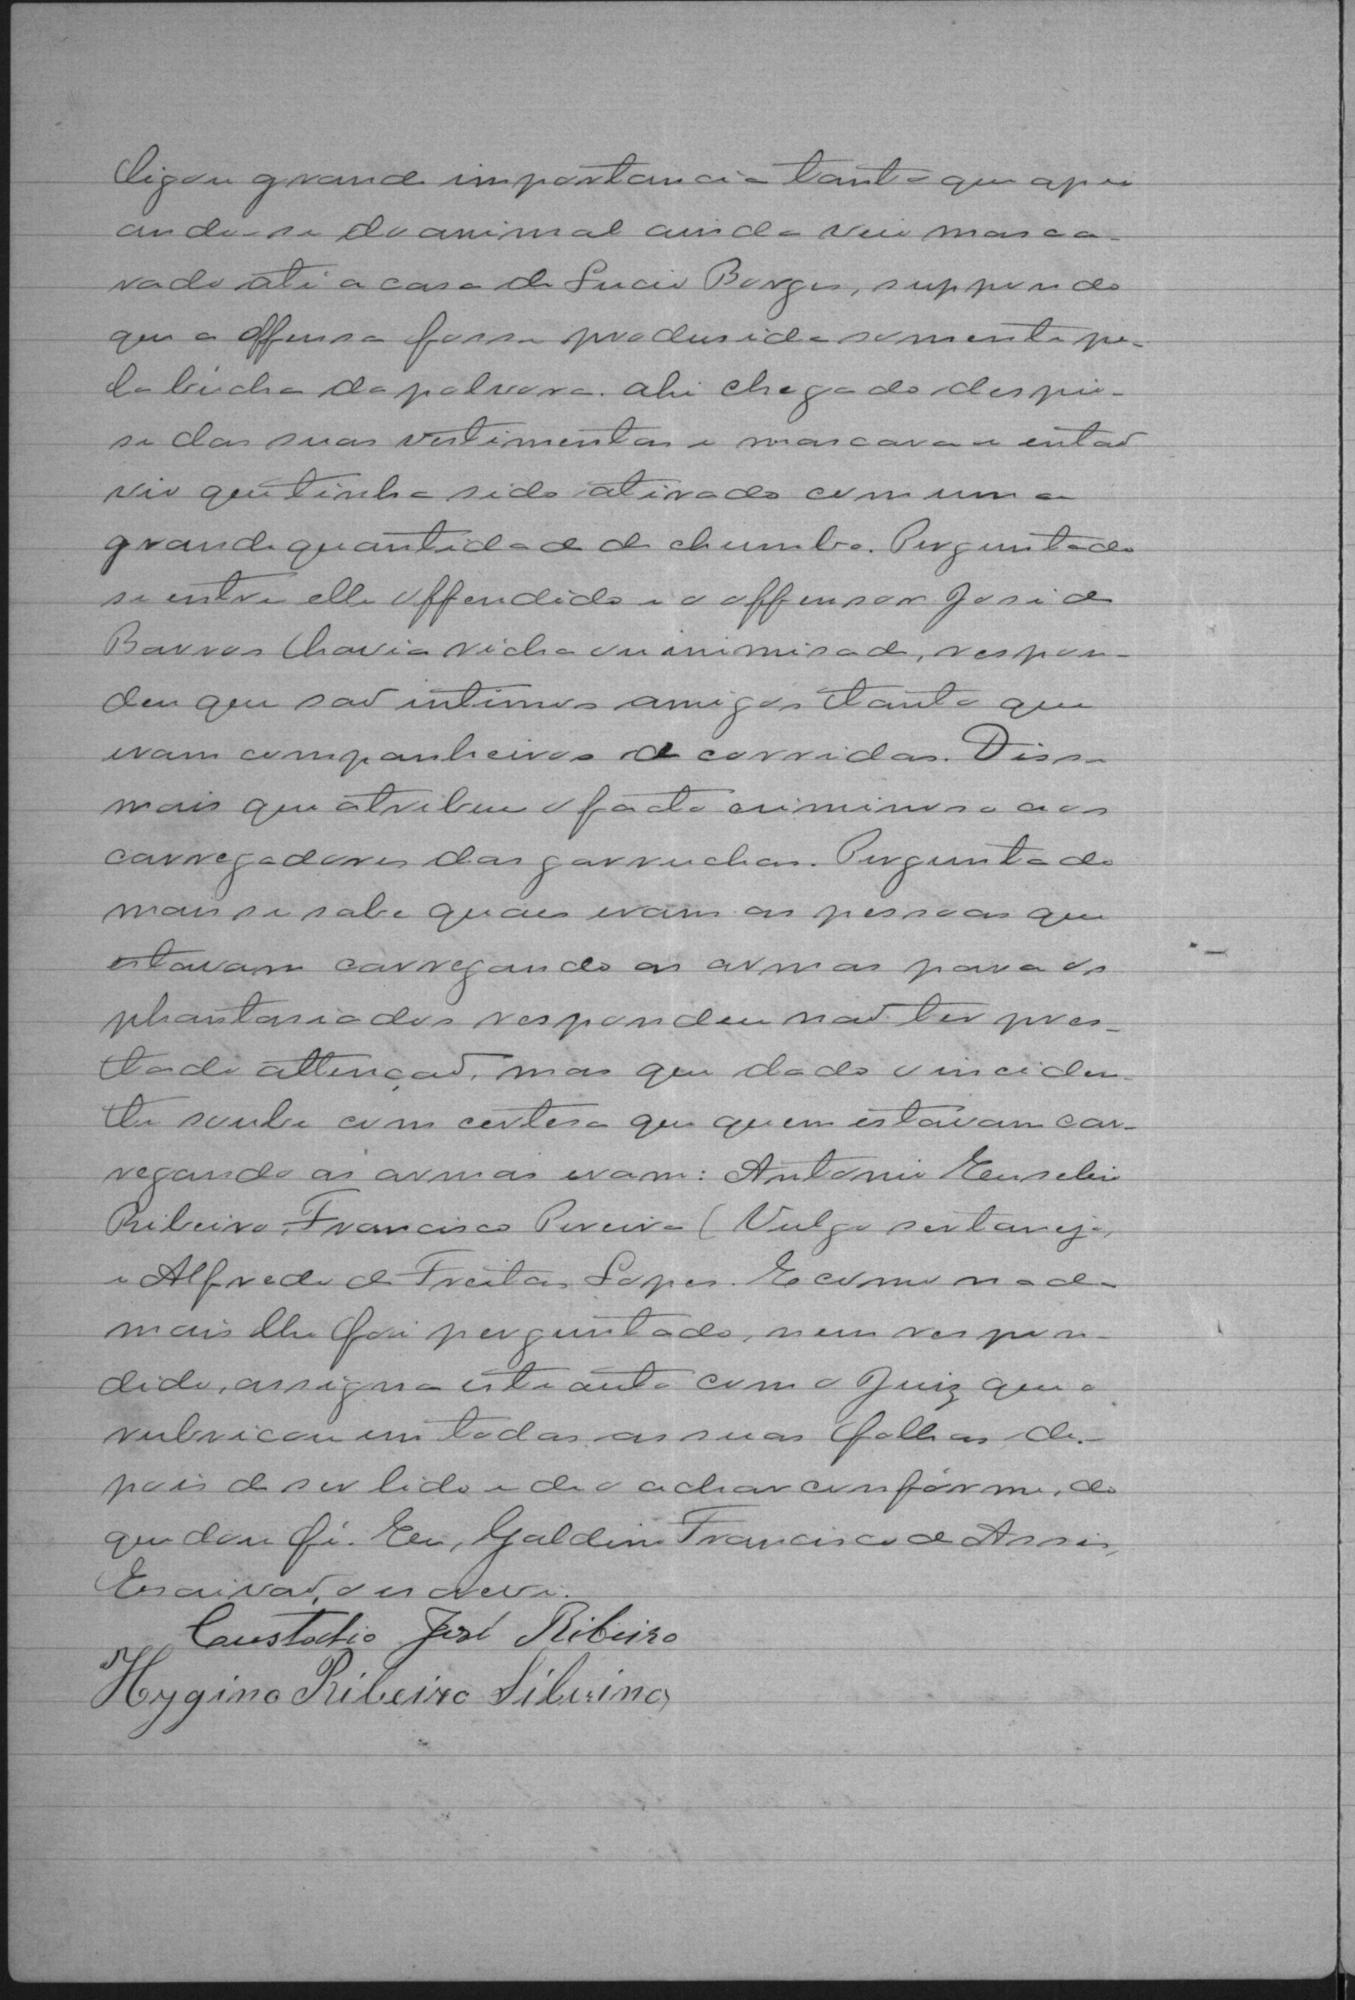 ligou grande importancia tanto que apei
ando-se do animal ainda veio masca-
rado até a casa de Lucio Borges, suppondo
que a offensa fosse produsida somente pe-
la bucha da polvora. Ahi chegado despiu-
se das suas vestimentas e mascara e entaõ
vio que tinha sido atirado com uma
grande quantidade de chumbo. Perguntado
se entre elle offendido e o offensor José de
Barros havia richa ou inimisade, respon-
deu que saõ intimos amigos tanto que
eram companheiros de corridas. Disse
mais que atribue o facto criminoso aos
carregadores das garruchas. Perguntado
mais se sabe quaes eram as pessoas que
estavam carregando as armas para os
phantasiados respondeu naõ ter pres-
tado attençaõ, mas que dado o inciden-
te soube com certesa que quem estavam car-
regando as armas eram: Antonio Eusebio
Ribeiro, Francisco Pereira (Vulgo sertanejo,
e Alfredo de Freitas Lopes. E como nada
mais lhe foi perguntado, nem respon-
dido, assigna este auto com o Juiz que o
rubricou em todas as suas folhas de-
pois de ser lido e de o achar confórme, do
que dou fé. Eu, Galdino Francisco de Assis,
Escrivaõ, o escrevi.
Custodio José Ribeiro
Hygino Ribeiro Silverino